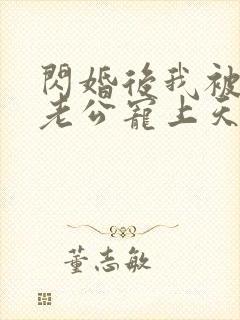 閃婚後我被
老公寵上天
董志敏